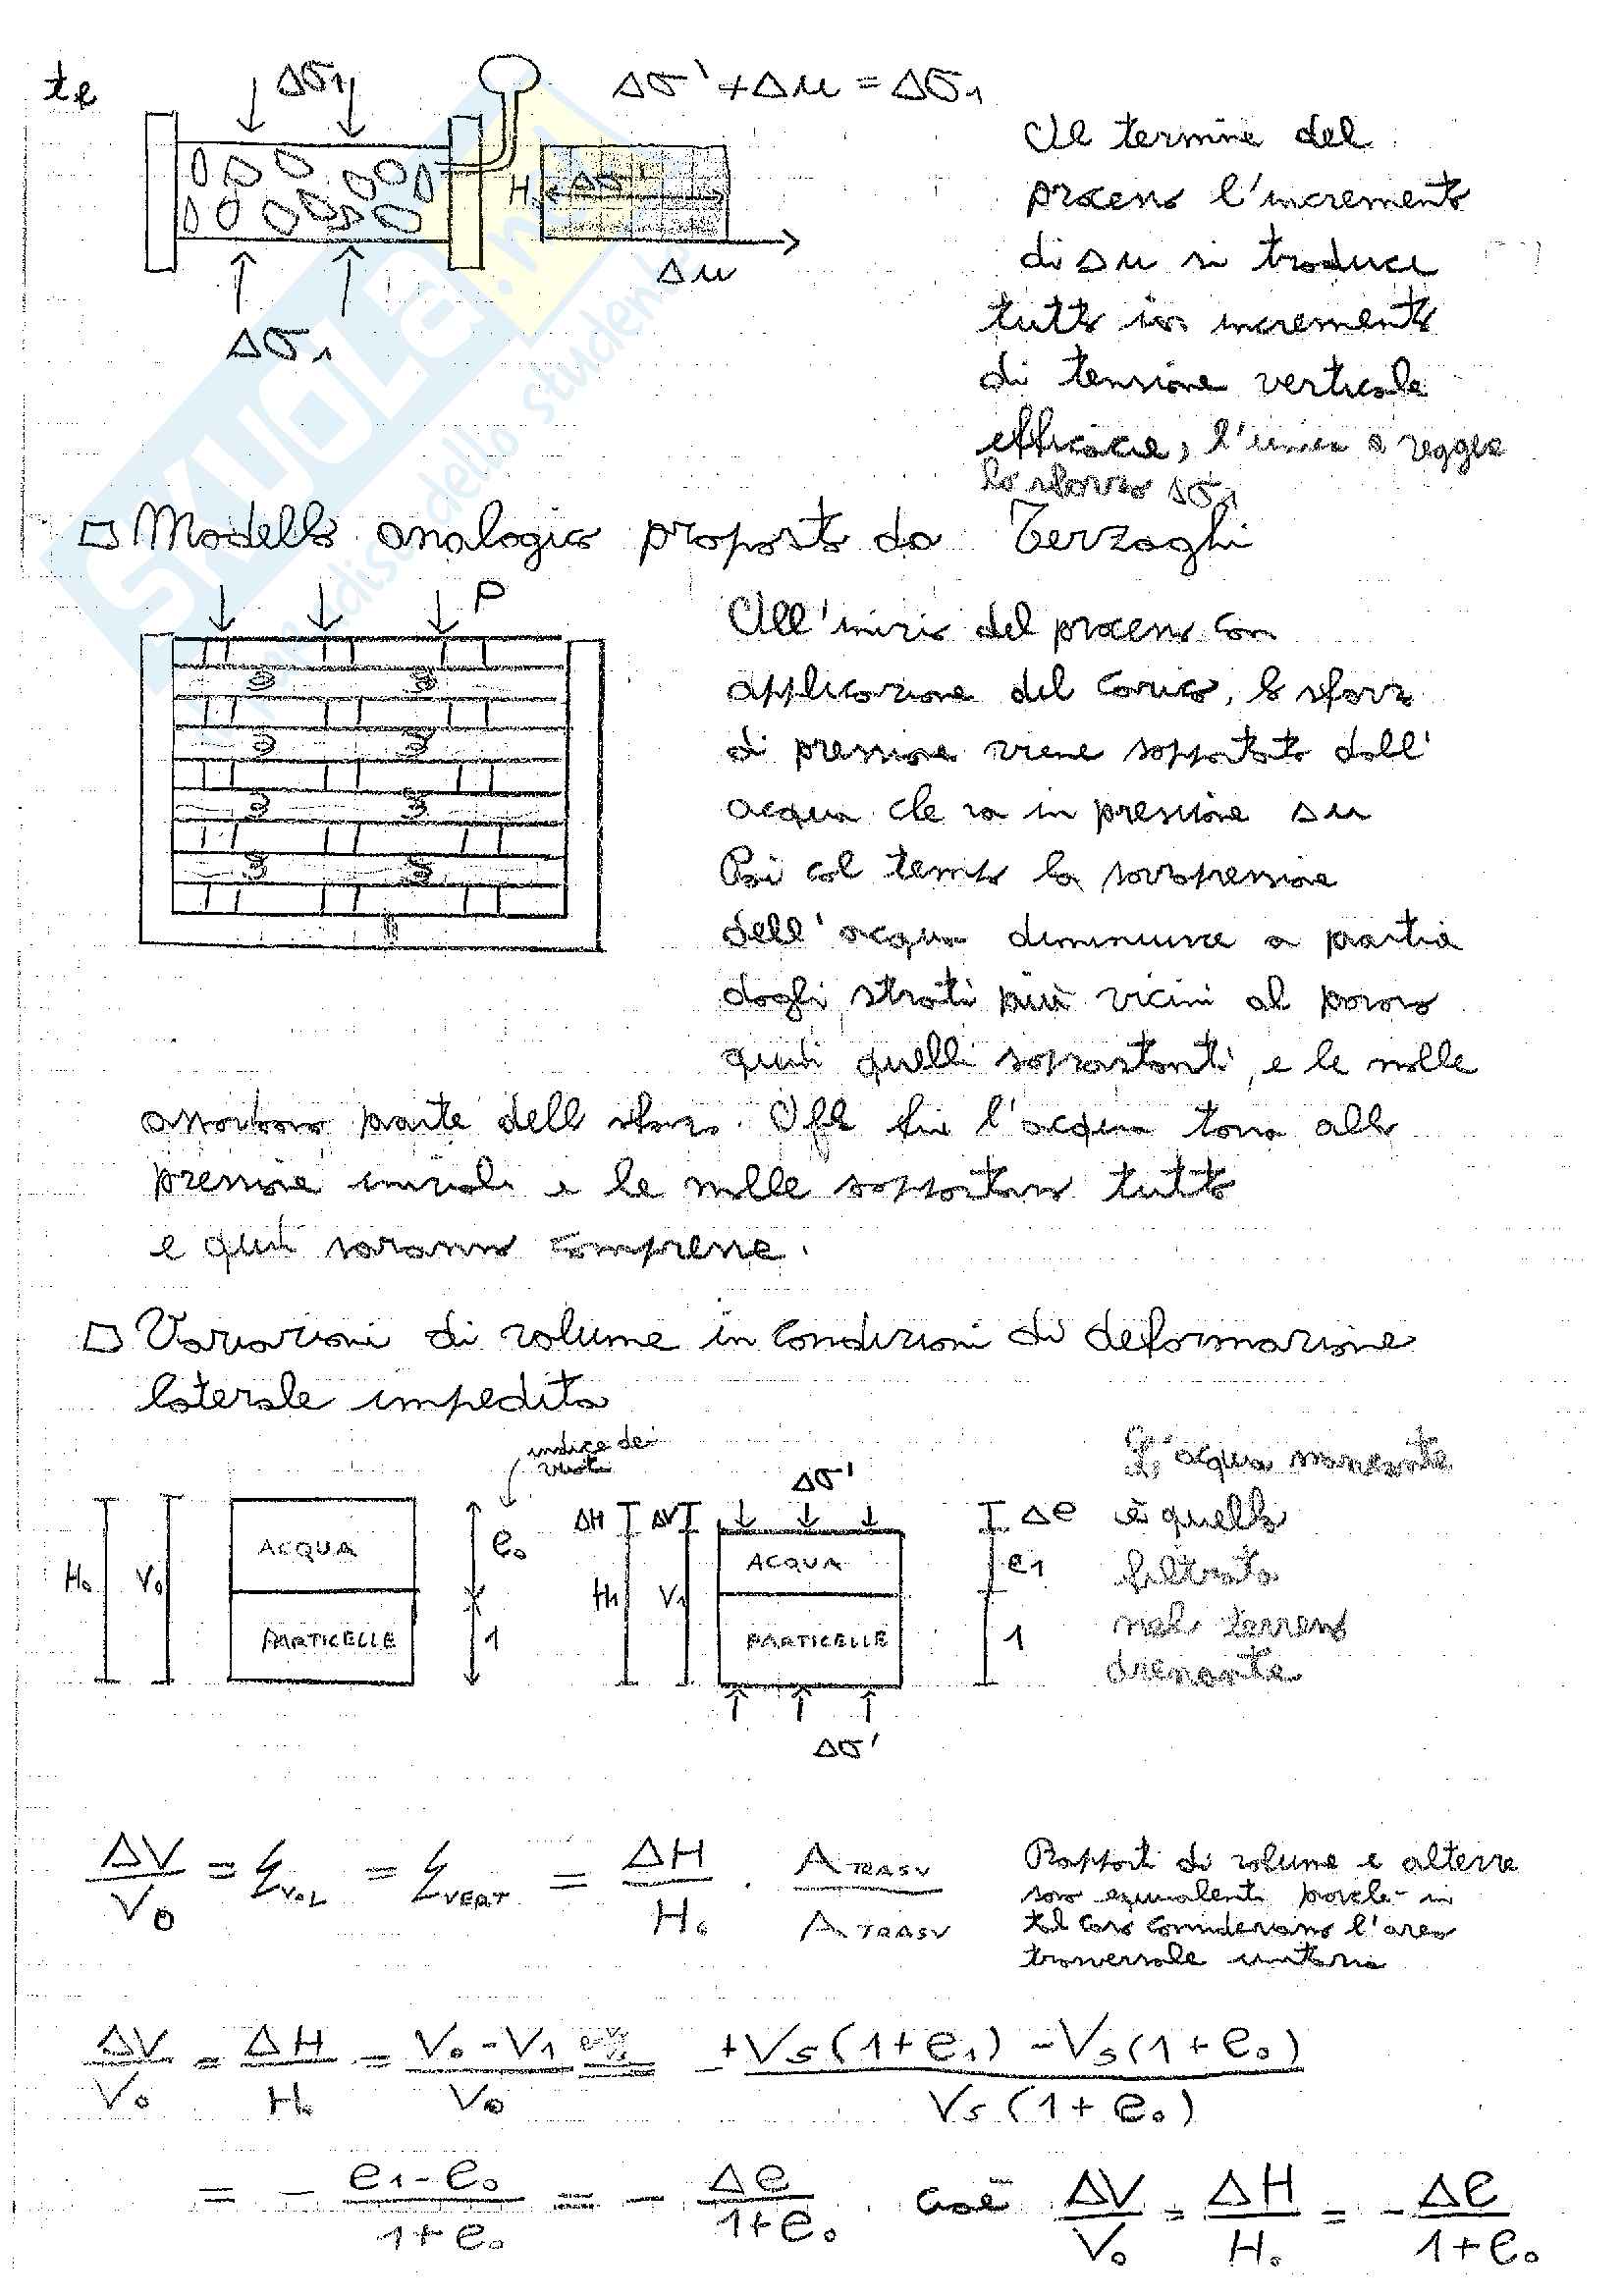 te
Δσ1
Δσ' + Δu = Δσ1
H.
Δσ'
Δu
Δσ1
Al termine del
processo l'incremento
di Δu si traduce
tutto in incremento
di tensione verticale
efficace, l'unica a reggere
lo sforzo Δσ1
□ Modello analogico proposto da Terzaghi
P
All'inizio del processo con
applicazione del carico, lo sforzo
di pressione viene sopportato dall'
acqua che va in pressione Δu
Poi col tempo la sovrapressione
dell'acqua diminuisce a partire
dagli strati più vicini al poroso
quindi quelli soprastanti, e le molle
assorbono parte dello sforzo. Alla fine l'acqua torna alla
pressione iniziale e le molle sopportano tutto
e quindi saranno compresse.
□ Variazioni di volume in condizioni di deformazione
laterale impedita
indice dei
vuoti
H₀ V₀
ACQUA
PARTICELLE
e₀
1
Δσ'
ΔH ΔV
H1 V1
ACQUA
PARTICELLE
Δσ'
Δe
e1
1
L'acqua mancante
è quella
filtrata
nel terreno
drenante
ΔV/V₀ = ξVOL = ξVERT = ΔH/H₀ · ATRASV/ATRASV
Rapporti di volume e altezze
sono equivalenti perchè in
tal caso consideriamo l'area
trasversale unitaria
ΔV/V₀ = ΔH/H₀ = V₀-V1/V₀ = +Vs(1+e1) -Vs(1+e₀)/Vs(1+e₀)
= - e1-e₀/1+e₀ = - Δe/1+e₀ cioè ΔV/V₀ = ΔH/H₀ = - Δe/1+e₀